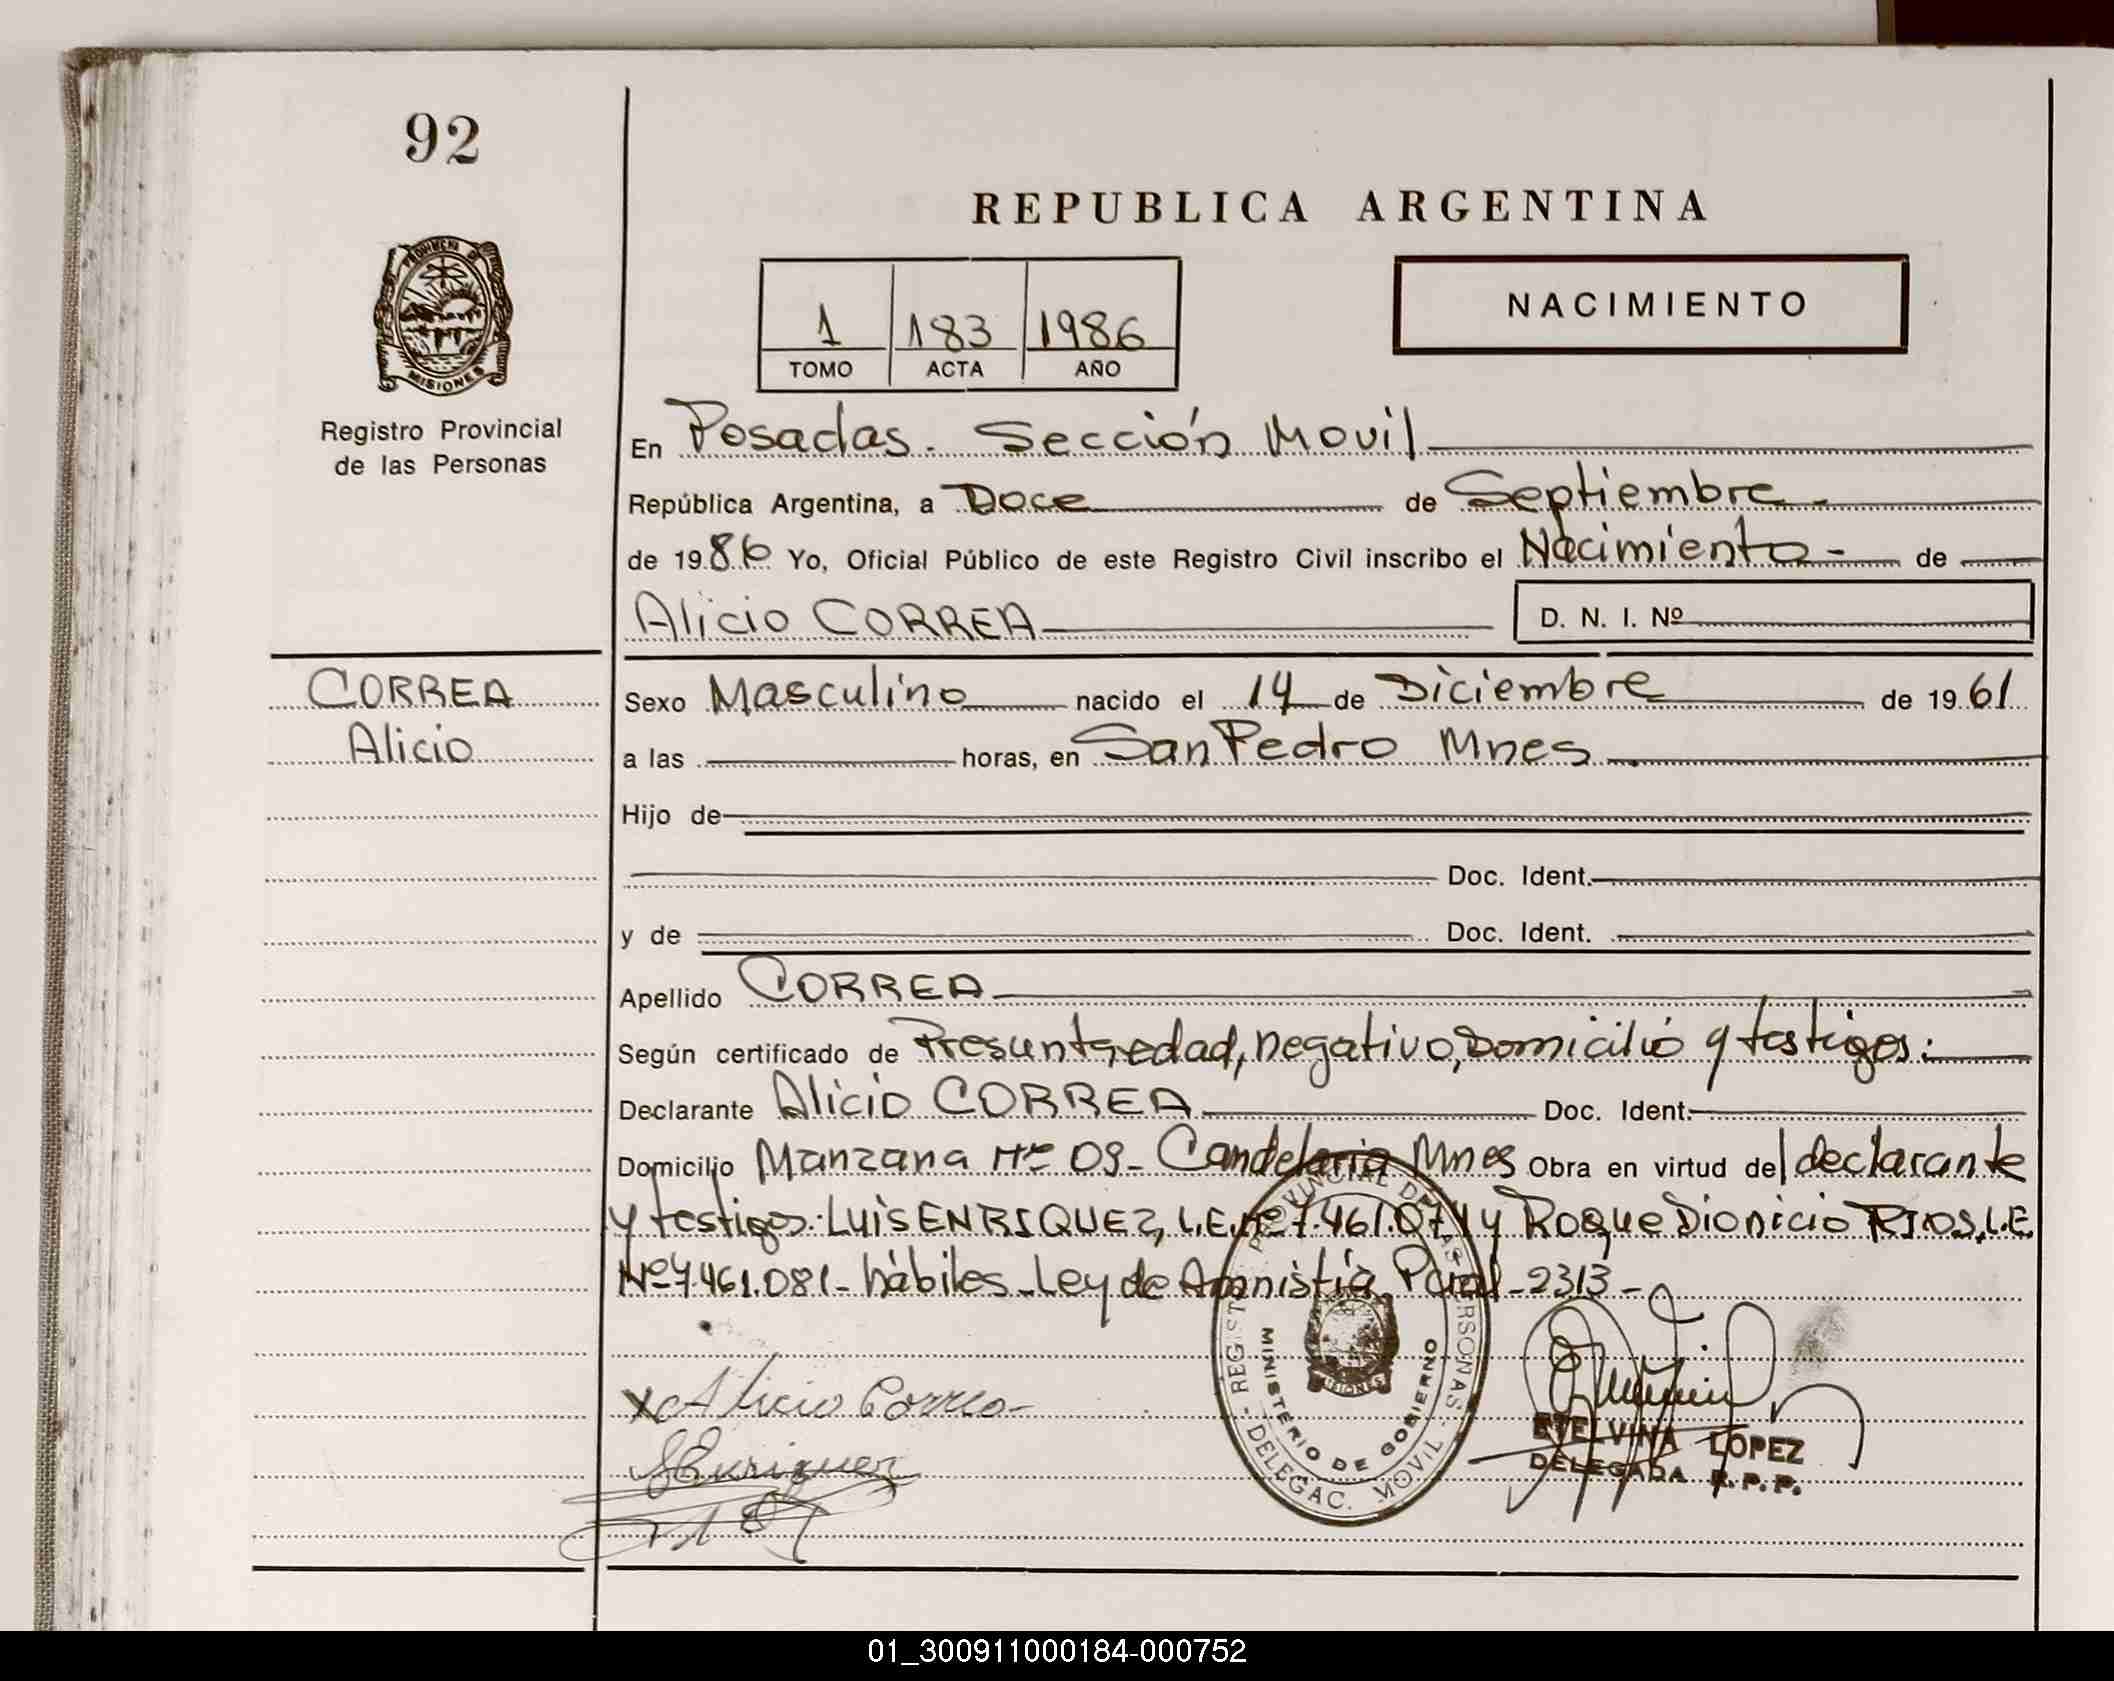 92
REPUBLICA ARGENTINA
PROVINCIA DE
MISIONES
Registro Provincial
de las Personas
1 183 1986
TOMO ACTA AÑO
NACIMIENTO
En Posadas. Sección Movil
República Argentina, a Doce de Septiembre.
de 1986 Yo, Oficial Público de este Registro Civil inscribo el Nacimiento- de
Alicio CORREA D. N. I. Nº
CORREA
Alicio
Sexo Masculino nacido el 14 de Diciembre de 1961
a las horas, en San Pedro Mnes
Hijo de
Doc. Ident.
y de Doc. Ident.
Apellido CORREA
Según certificado de Presunta, edad, negativo, Domicilio y testigos:
Declarante Alicio CORREA Doc. Ident.
Domicilio Manzana Nº 09- Candelaria Mnes Obra en virtud del declarante
y testigos: LUIS ENRIQUEZ, L.E. nº 7.461.071 y Roque Dionicio RIOS, L.E.
Nº 7.461.081- hábiles- Ley de Amnistía Pcial- 2313-
REGISTRO PROVINCIAL DE LAS PERSONAS - DELEGAC. MOVIL -
MINISTERIO DE GOBIERNO
MISIONES
x Alicio Correa-
Enriquez
ETELVINA LOPEZ
DELEGADA R.P.P.
01_300911000184-000752